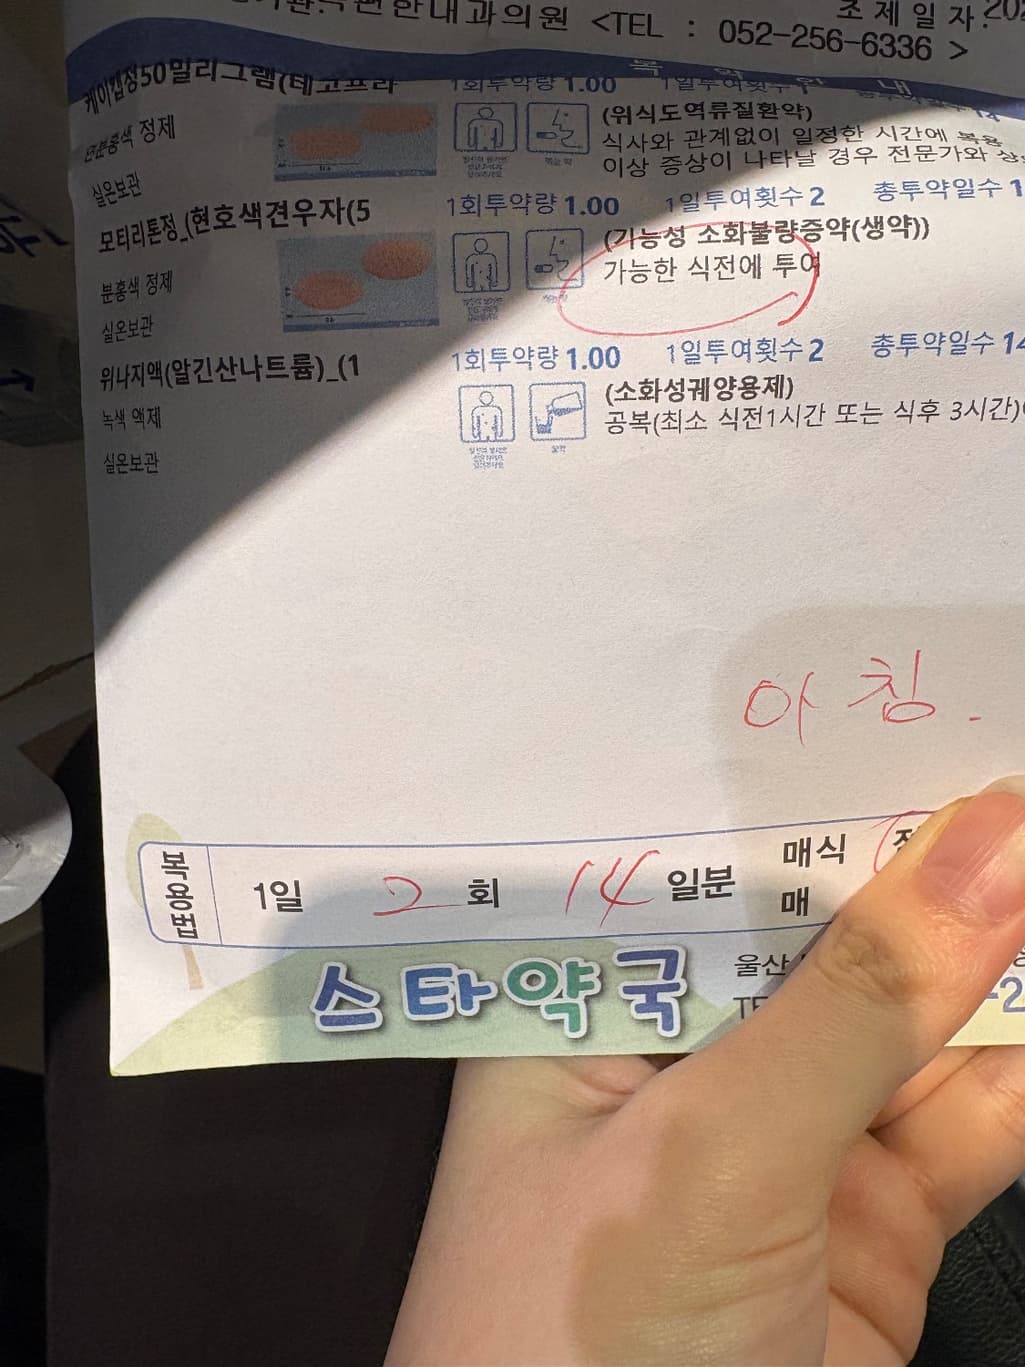 편한내과의원 <TEL : 052-256-6336 >
조제일자:
복 약 안 내
케이캡정50밀리그램(테고프라
1회투약량 1.00 1일투여횟수 1
연분홍색 정제
(위식도역류질환약)
식사와 관계없이 일정한 시간에 복용
실온보관
이상 증상이 나타날 경우 전문가와
모티리톤정_(현호색견우자(5
1회투약량 1.00 1일투여횟수 2 총투약일수 1
분홍색 정제
(기능성 소화불량증약(생약))
가능한 식전에 투여
실온보관
위나지액(알긴산나트륨)_(1
1회투약량 1.00 1일투여횟수 2 총투약일수 14
녹색 액제
(소화성궤양용제)
공복(최소 식전1시간 또는 식후 3시간)
실온보관
아침.
복용법
1일 2 회 14 일분
매식
매
스타약국
울산